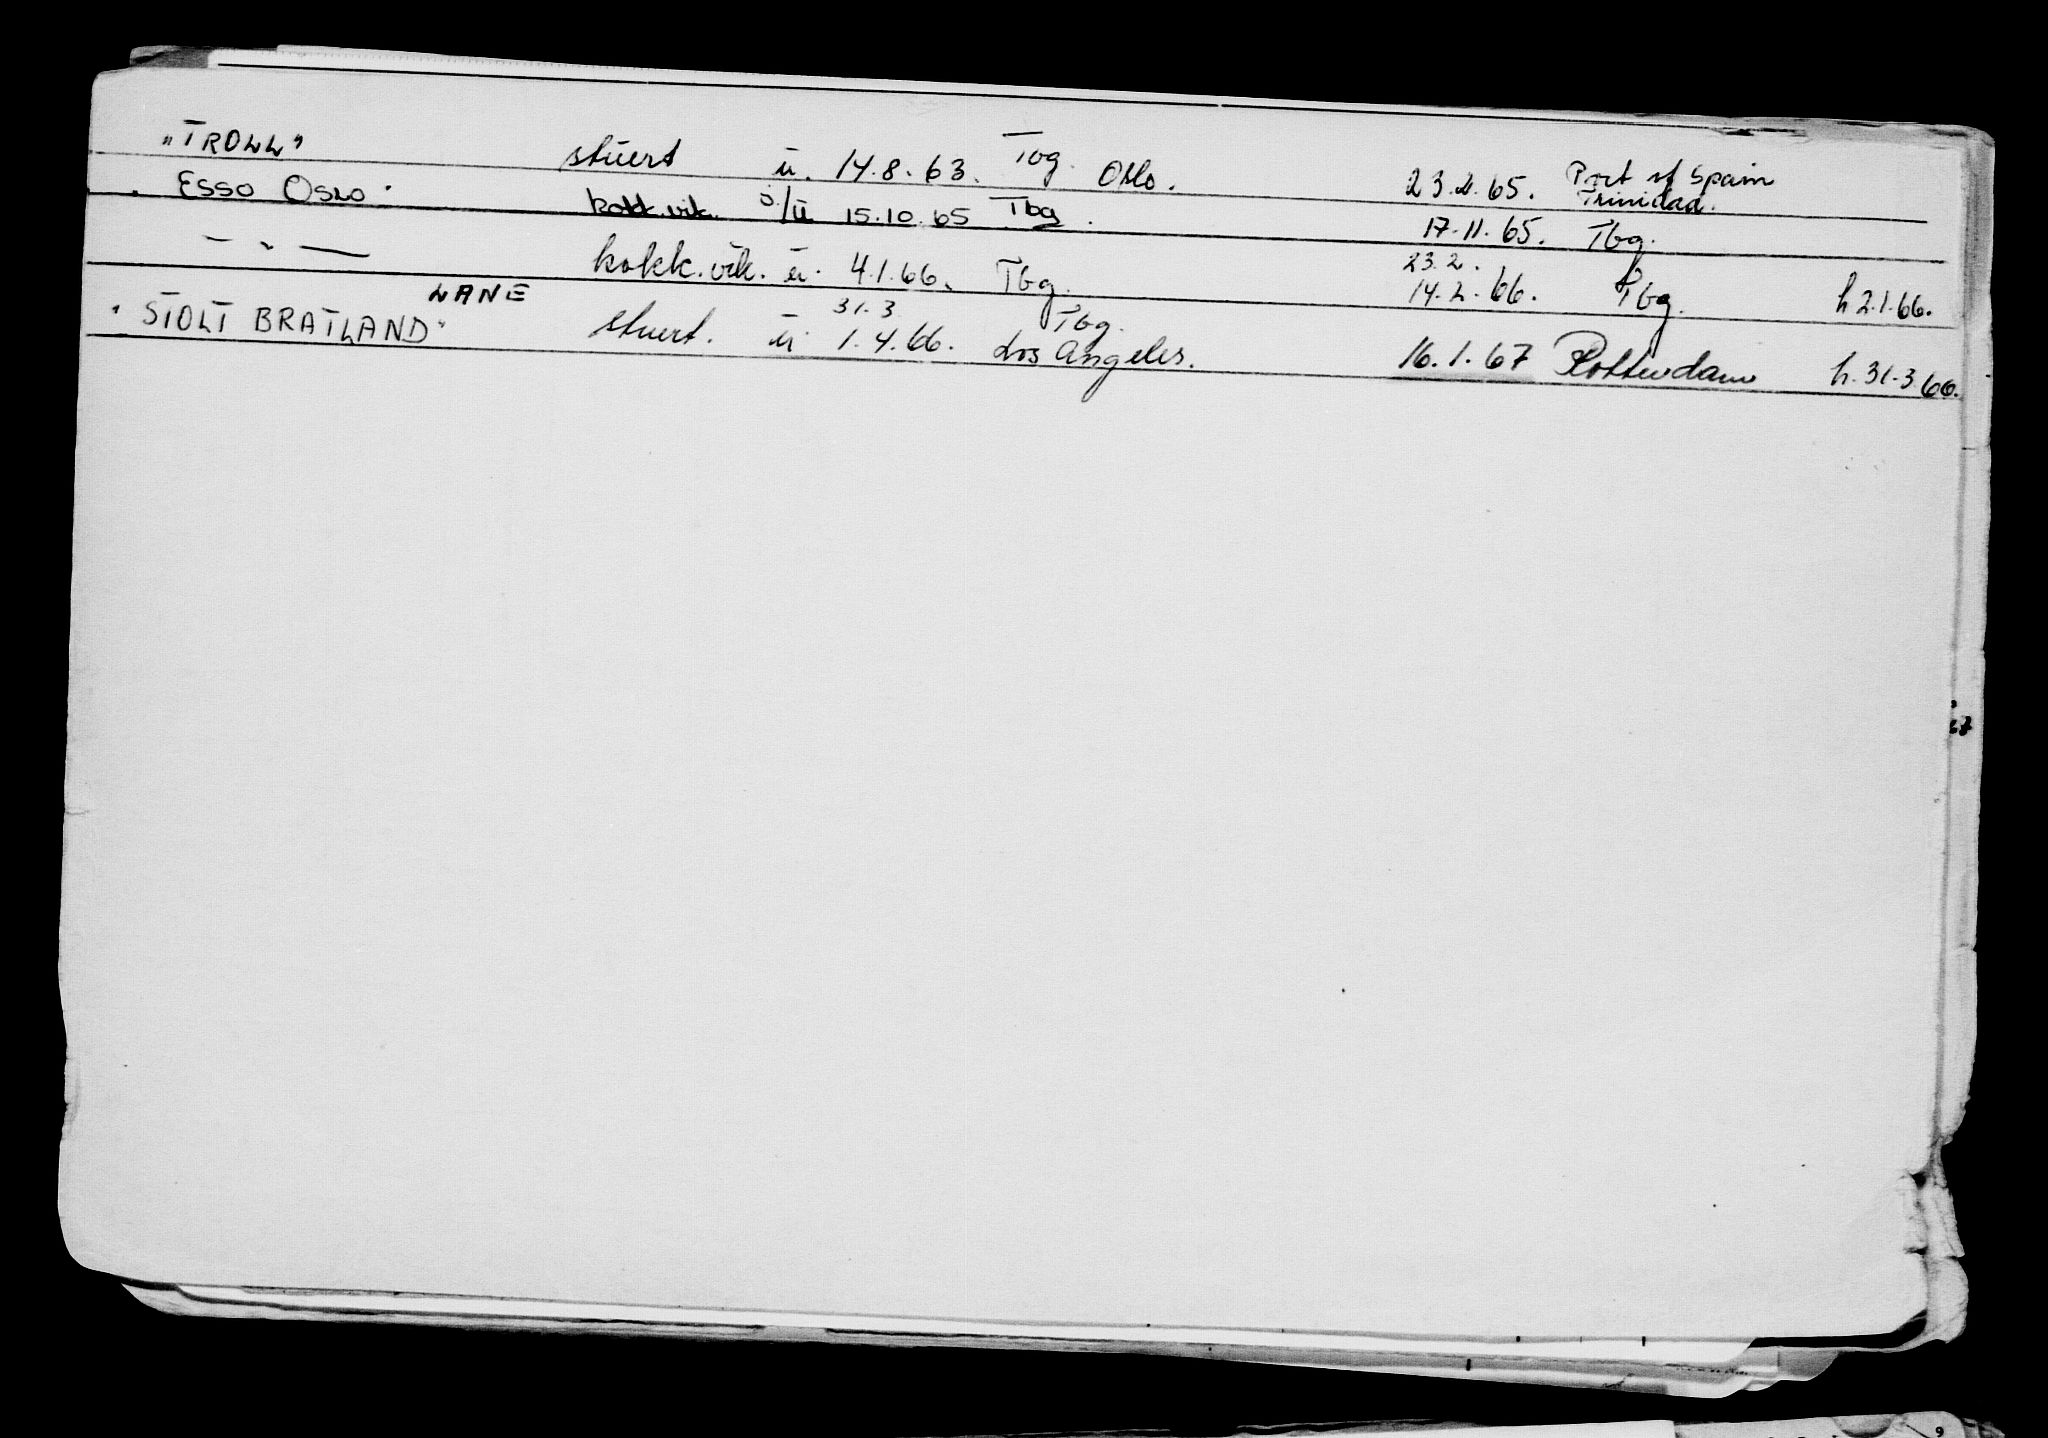 "TROLL" stuert u. 14.8.63. Tbg. Oslo. 23.2.65. Port of Spain Trinidad.
" Esso Oslo " kokk.vik. ö/u 15.10.65 Tbg. 17.11.65. Tbg.
— " — kokk.vik. u. 4.1.66. Tbg. 23.2. 14.2.66. Tbg. h 2.1.66.
LANE
"STOLT BRATLAND" stuert. u 31.3 1.4.66. Tbg. Los Angeles. 16.1.67 Rotterdam h. 31.3.66.